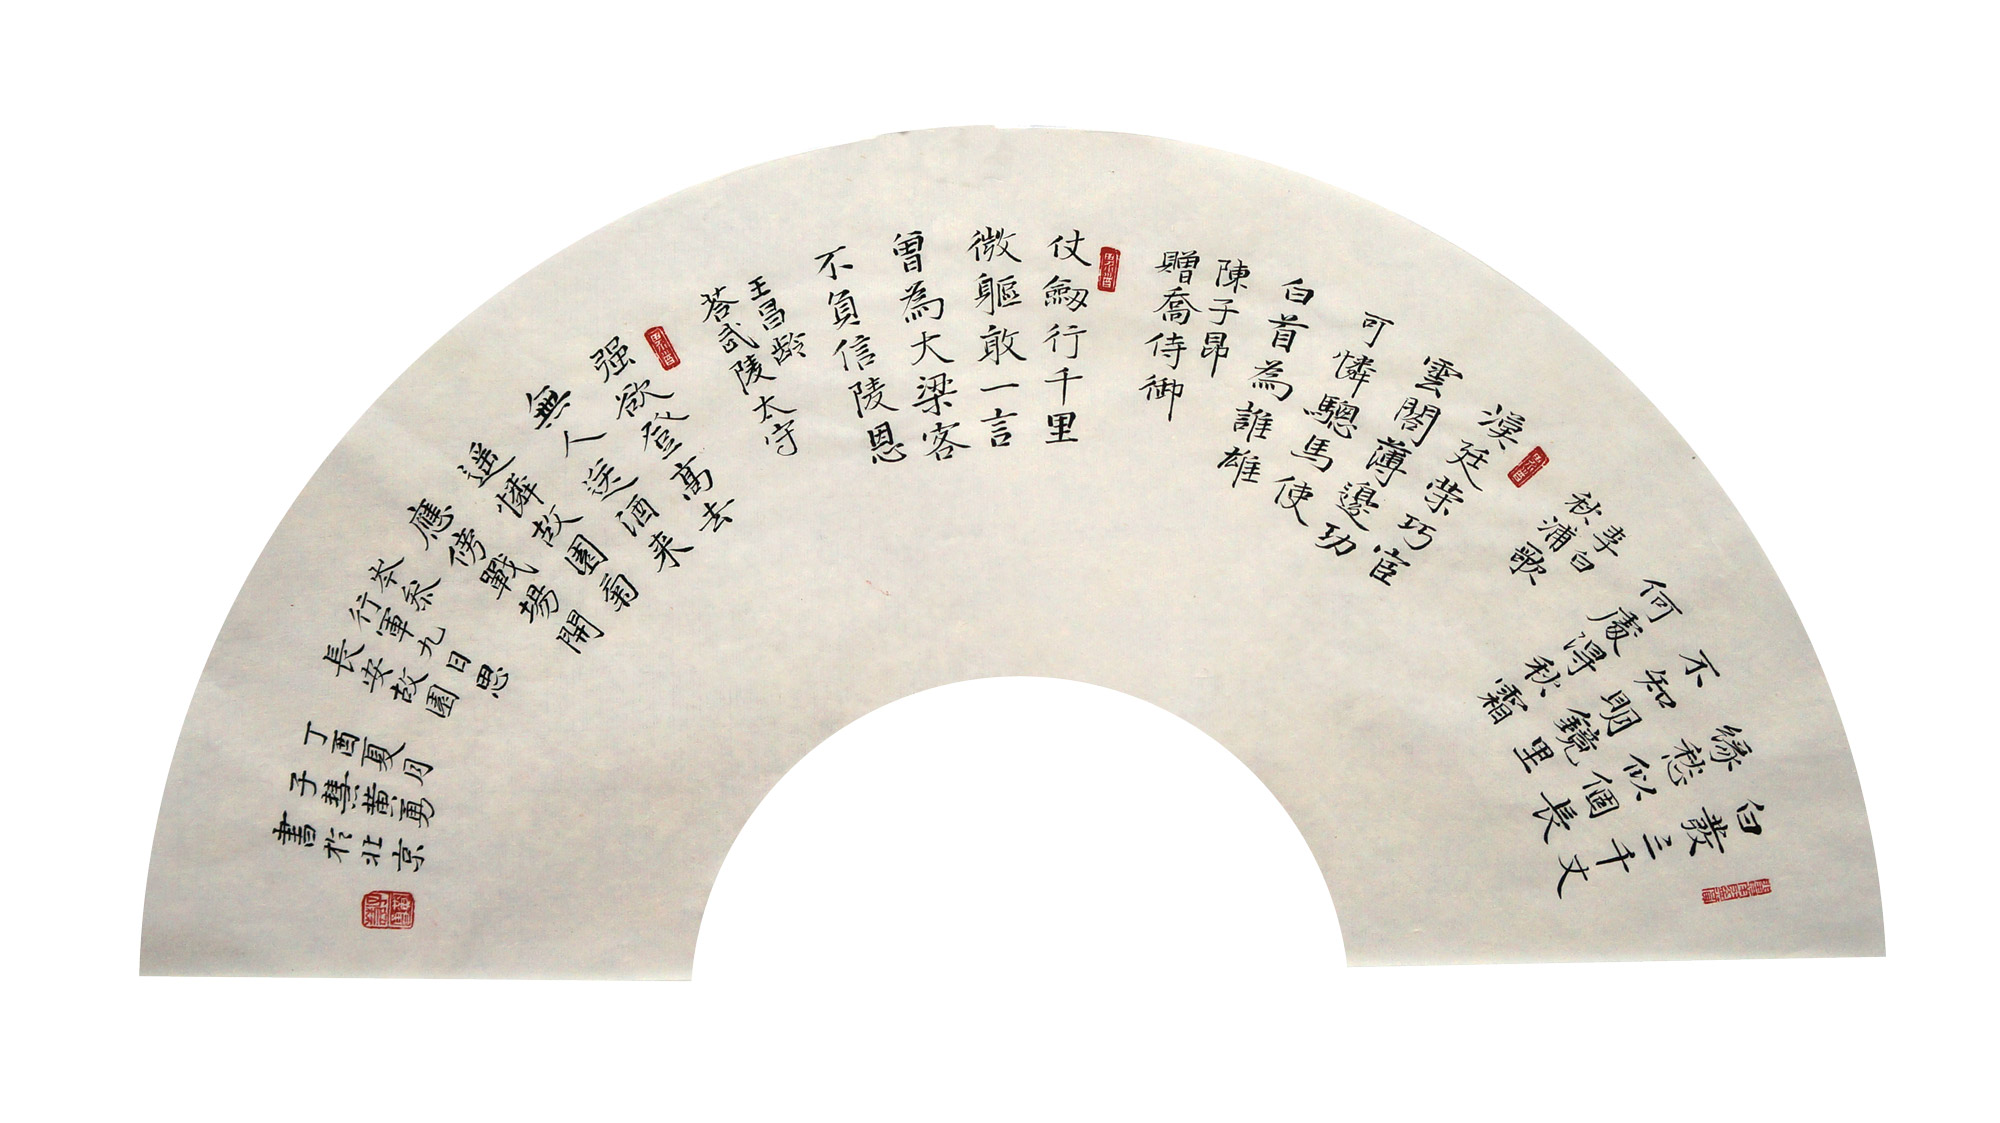 白發三千丈
緣愁似個長
不知明鏡里
何處得秋霜
李白
秋浦歌
漢廷榮巧宦
雲閣薄邊功
可憐驄馬使
白首為誰雄
陳子昂
贈喬侍御
仗劒行千里
微軀敢一言
曾為大梁客
不負信陵恩
王昌龄
荅武陵太守
强欲登高去
無人送酒来
遥憐故園菊
應傍戰場開
岑参九日思
行軍
長安故園
丁酉夏月
子慧黄勇
書於北京